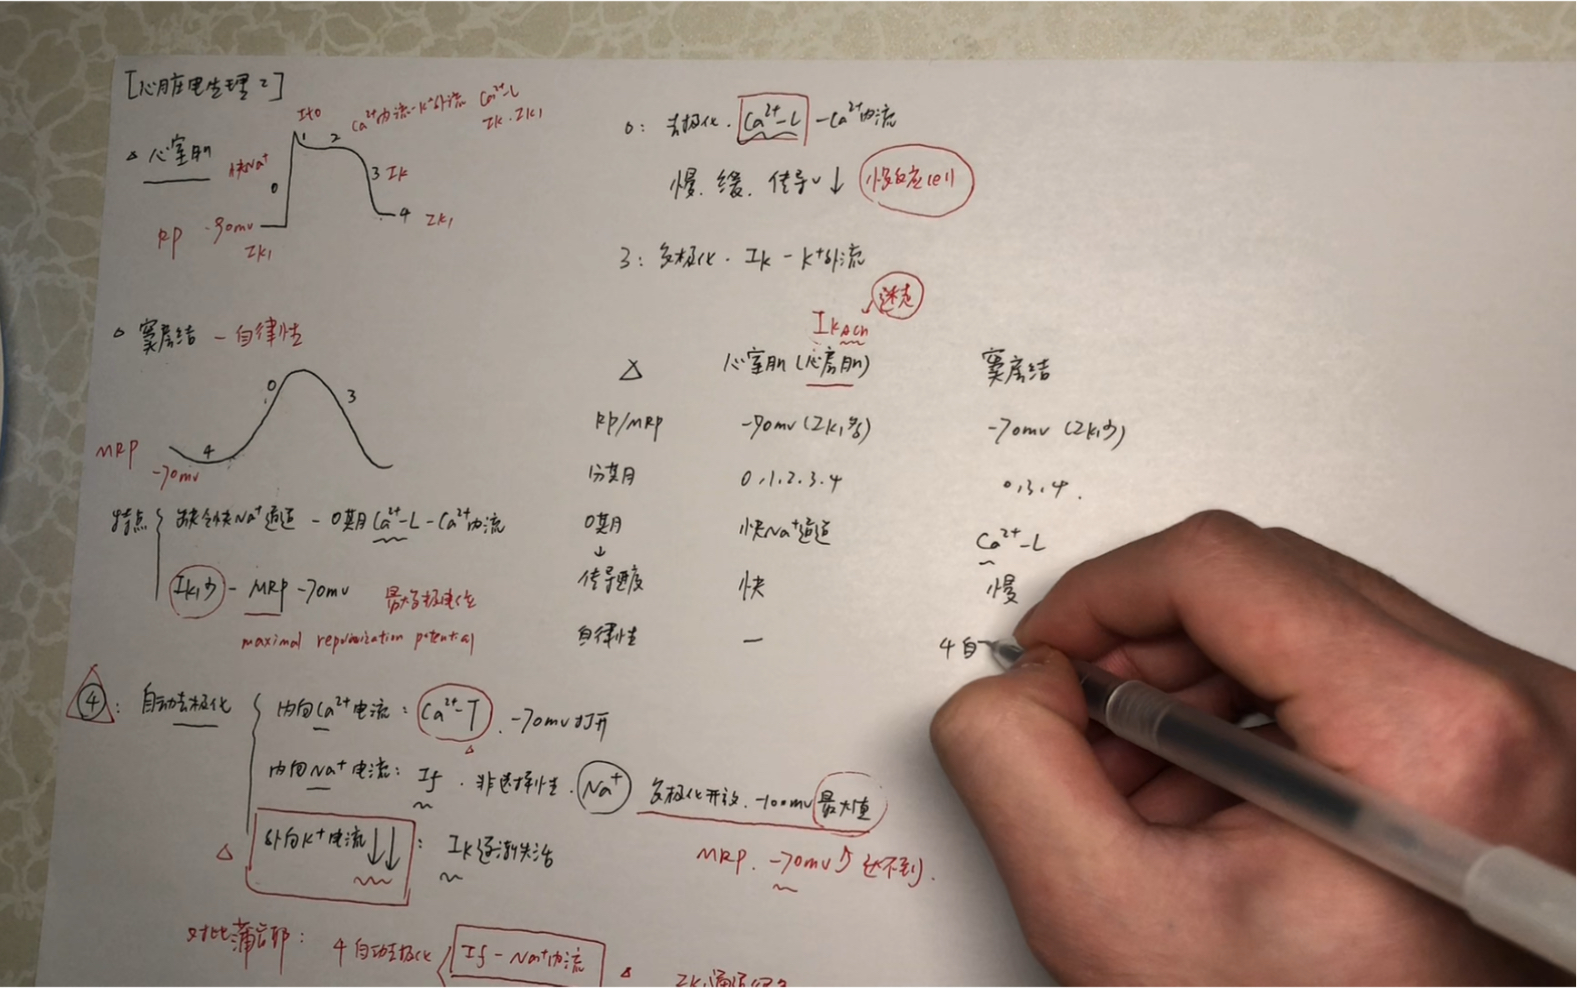 [心脏电生理2]
△ 心室肌
快Na⁺
0
Ito
1
2
Ca²⁺内流-K⁺外流 Ca²⁺-L
Ik.Ik1
3 Ik
4 Ik1
RP -90mv
Ik1
△ 窦房结 - 自律性
0
3
4
MRP
-70mv
特点 缺乏快Na⁺通道 - 0期Ca²⁺-L-Ca²⁺内流
Ik1少 - MRP -70mv 最大复极电位
maximal repolarization potential
④: 自动去极化
内向Ca²⁺电流: Ca²⁺-T . -70mv打开
内向Na⁺电流: If . 非选择性 . Na⁺ 复极化开放. -100mv最大值
外向K⁺电流↓↓ : Ik逐渐失活
MRP. -70mv 达不到.
对比蒲肯耶: 4自动去极化 If-Na⁺内流
0: 去极化. Ca²⁺-L -Ca²⁺内流
慢. 缓. 传导v↓ 慢反应cell
3: 复极化. Ik-K⁺外流
迷走
IkAch
△ 心室肌(心房肌) 窦房结
RP/MRP -90mv(Ik1多) -70mv(Ik1少)
分期 0.1.2.3.4 0.3.4.
0期 快Na⁺通道 Ca²⁺-L
↓
传导速度 快 慢
自律性 — 4自